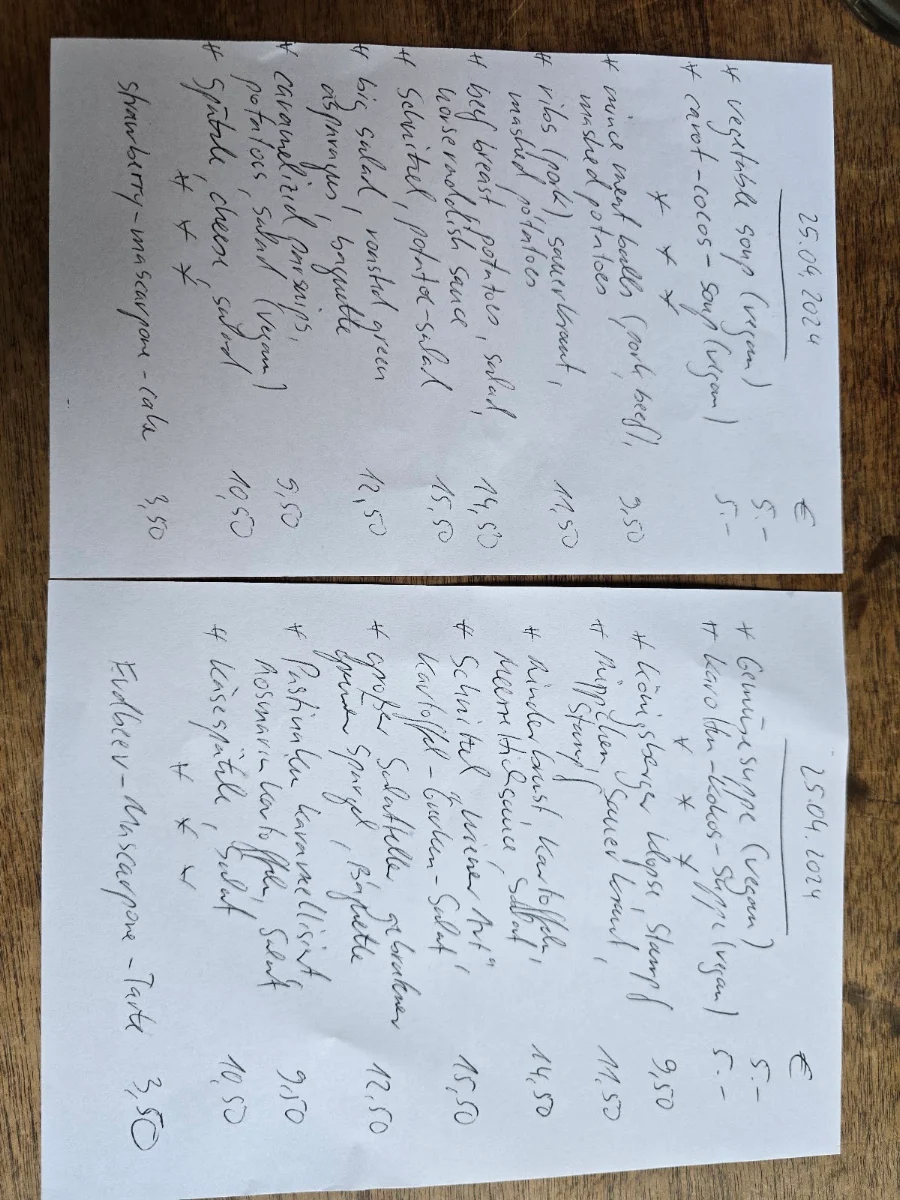 25.04.2024
€
* vegetable soup (vegan) 5.-
* carot-cocos-soup (vegan) 5.-
* * *
* mince meat balls (pork, beef), 9,50
mashed potatoes
* ribs (pork), sauerkraut, 11,50
mashed potatoes
* beef breast, potatoes, salad, 14,50
horseraddish sauce
* Schnitzel, potatoe-salad 15,50
* big salad, roasted green 12,50
asparagus, baguette
* caramelized parsnips, 9,50
potatoes, salad (vegan)
* Spätzle, cheese, salad 10,50
* * *
strawberry-mascarpone-cake 3,50
25.04.2024
€
* Gemüsesuppe (vegan) 5.-
* Karotten-Kokos-Suppe (vegan) 5.-
* * *
* Königsberger Klopse, Stampf 9,50
* Rippchen, Sauerkraut, 11,50
Stampf
* Rinderbrust, Kartoffeln, 14,50
Meerrettichsauce, Salat
* Schnitzel "Wiener Art", 15,50
Kartoffel-Gurken-Salat
* großer Salatteller, gebratener 12,50
grüner Spargel, Baguette
* Pastinaken karamellisiert, 9,50
Rosmarinkartoffeln, Salat
* Käsespätzle, Salat 10,50
* * *
Erdbeer-Mascarpone-Tarte 3,50